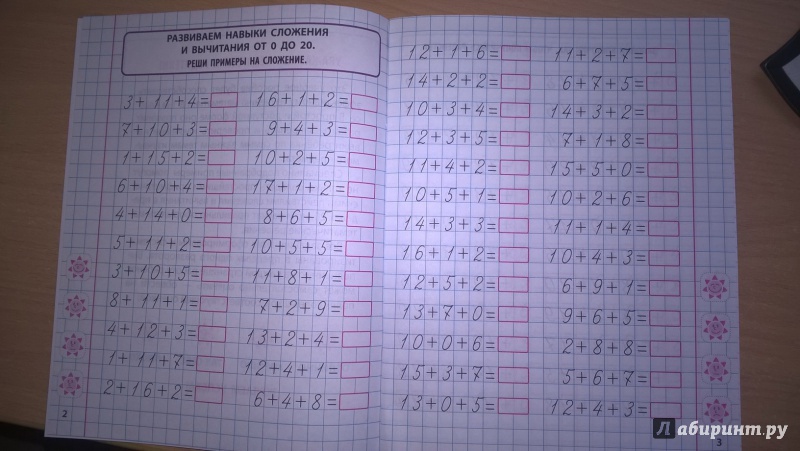 РАЗВИВАЕМ НАВЫКИ СЛОЖЕНИЯ
И ВЫЧИТАНИЯ ОТ 0 ДО 20.
РЕШИ ПРИМЕРЫ НА СЛОЖЕНИЕ.
3+11+4=
7+10+3=
1+15+2=
6+10+4=
4+14+0=
5+11+2=
3+10+5=
8+11+1=
4+12+3=
1+11+7=
2+16+2=
16+1+2=
9+4+3=
10+2+5=
17+1+2=
8+6+5=
10+5+5=
11+8+1=
7+2+9=
13+2+4=
12+4+1=
6+4+8=
2
12+1+6=
14+2+2=
10+3+4=
12+3+5=
11+4+2=
10+5+1=
14+3+3=
16+1+2=
12+5+2=
13+7+0=
10+0+6=
15+3+7=
13+0+5=
11+2+7=
6+7+5=
14+3+2=
7+1+8=
15+5+0=
10+2+6=
11+1+4=
10+4+3=
6+9+1=
9+6+5=
2+8+8=
5+6+7=
12+4+3=
3
Лабиринт.ру